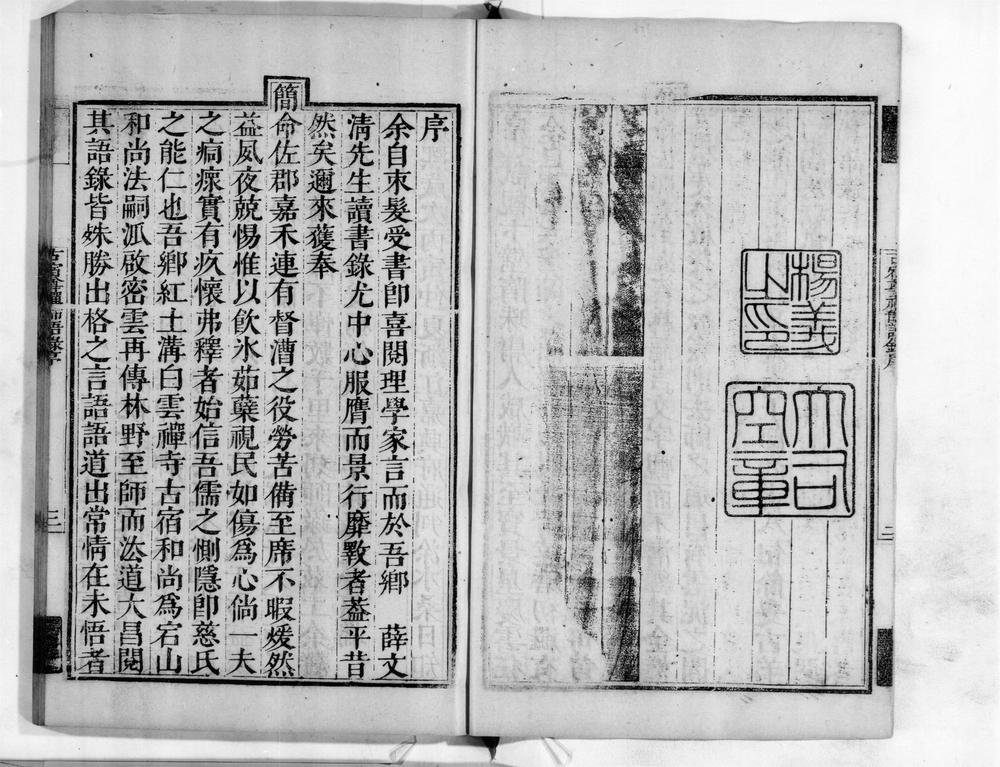 古宿尊禪師語錄序
二
楊義之印
大司空章
序
余自束髮受書卽喜閱理學家言而於吾鄉 薛文
清先生讀書錄尤中心服膺而景行靡斁者葢平昔
然矣邇來獲奉
簡命佐郡嘉禾連有督漕之役勞苦備至席不暇煖然
益夙夜兢惕惟以飲氷茹蘗視民如傷爲心倘一夫
之痌瘝實有疚懷弗釋者始信吾儒之惻隱卽慈氏
之能仁也吾鄉紅土溝白雲禪寺古宿和尚爲宕山
和尚法嗣泒啟密雲再傳林野至師而㳒道大昌閱
其語錄皆姝勝出格之言語語道出常情在未悟者
古宿尊禪師語錄序
三